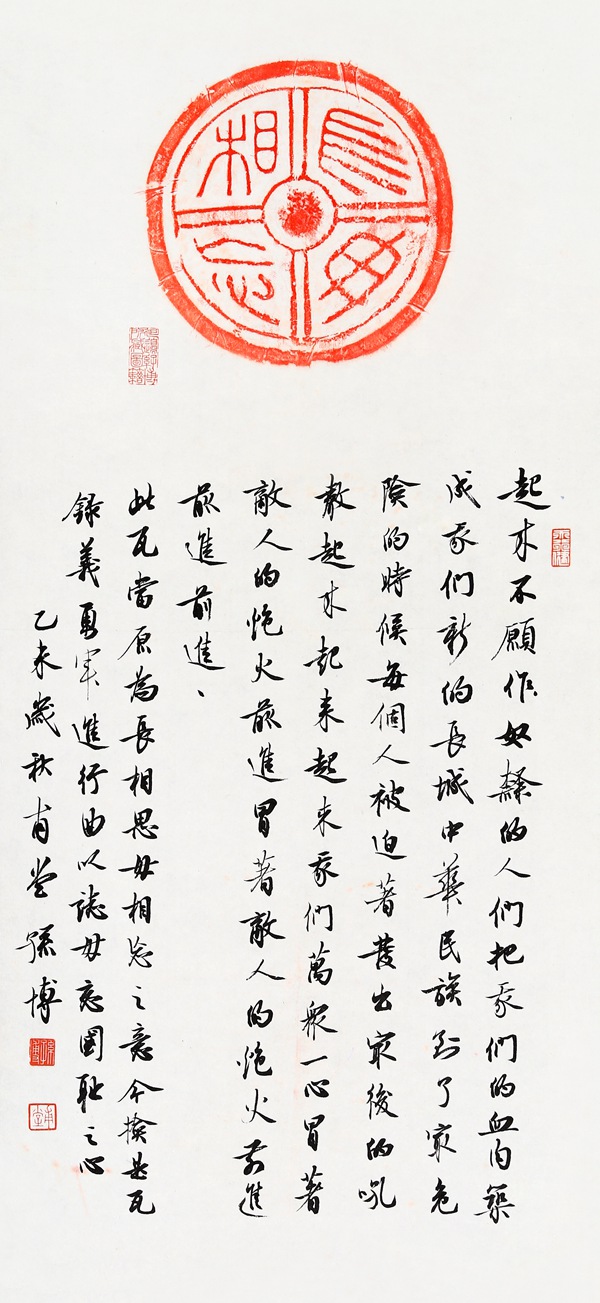 長毋相忘
起來不願作奴隸的人們把我們的血肉築
成我們新的長城中華民族到了最危
險的時候每個人被迫著發出最後的吼
聲起來起來起來我們萬眾一心冒著
敵人的炮火前進冒著敵人的炮火前進
前進前進、
此瓦當原為長相思毋相忘之意今是瓦
錄義勇軍進行曲以誌毋忘國恥之心
乙未歲秋甫堂孫博
孫博
甫堂